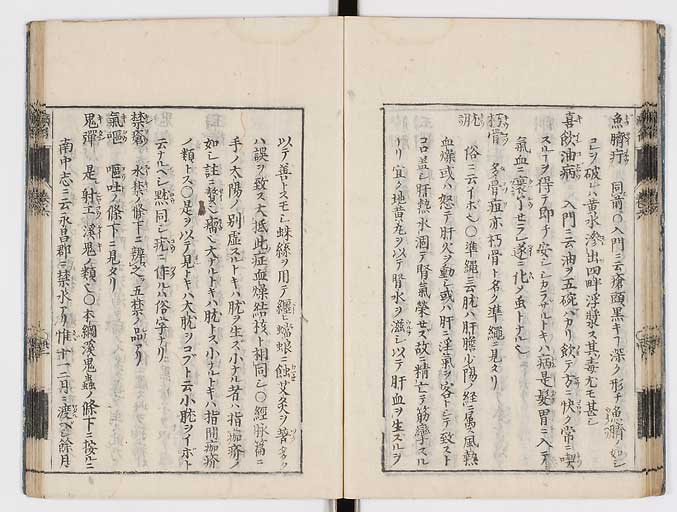 魚臍疔　同前〇入門ニ云瘡頭黒キ丁深ク形チ魚臍ノ如シ
コレヲ破レハ黄水滲出四畔浮漿ス其毒尤モ甚シ
喜飲油病　入門ニ云油ヲ五碗バカリ飲テ方ニ快ク常ニ喫
スルヿヲ得テ即チ安シシカラザルトキハ病是髪胃ニ入テ
氣血ニ裹マセラレ遂ニ化メ虫トナルヘシ
朽骨　多骨疽亦朽骨ト名ク準繩ニ見タリ
肬　俗ニ云イボ〇準繩ニ云肬ハ肝膽少陽ノ経ニ属ス風熱
血燥或ハ怒テ肝火ヲ動シ或ハ肝ニ淫氣ヲ客トシテ致スト
コロ蓋シ肝熱水涸テ腎氣榮セズ故ニ精亡テ筋攣スル
ナリ宜ク地黄丸ヲ以テ腎水ヲ滋シ以テ肝血ヲ生スルヲ
以テ善トスモシ蛛絲ヲ用テ纏ヒ蟷蜋ニ蝕艾灸ヲ著ク
ハ誤ヲ致ス大抵此症血燥結核ト相同シ〇經脉篇ニ
手ノ太陽ノ別虚スルトキハ肬ヲ生ズ小ナル者ハ指痂疥ノ
如シ註ニ贅ヒ瘤ヒ大ナルトキハ肬トス小ナルトキハ指間痂疥
ノ類トス〇是ヲ以テ見トキハ大肬ヲコブト云小肬ヲイボト
云ナルヘシ黙同シ疣ニ作ルハ俗字ナリ
禁瘡　水禁ノ條下ニ辨之五禁ノ一品ナリ
氣嘔　嘔吐ノ條下ニ見タリ
鬼彈　是レ射工渓鬼ノ類ヒ〇本綱渓鬼蟲ノ條下ニ按ルニ
南中志ニ云永昌郡ニ禁水アリ惟十一二月ニ渡ヘシ餘月